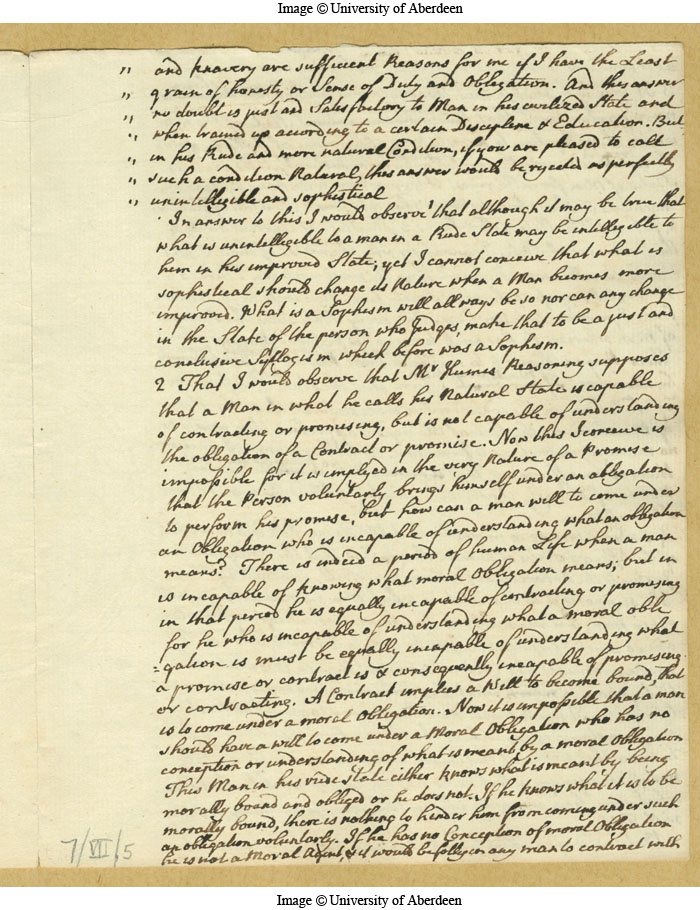 Image © University of Aberdeen
" and knavery are sufficient Reasons for me if I have the Least
" grain of honesty or Sense of Duty and Obligation. And this answer
" no doubt is just and Satisfactory to Man in his civilized State and
" when trained up according to a certain Discipline & Education. But
" in his Rude and more natural Condition, if you are pleased to call
" such a condition Natural, this answer would be rejected as perfectly
" unintelligible and sophistical
In answer to this I would observe 1 that although it may be true that
what is unintelligible to a man in a Rude State may be intelligible to
him in his improved State; yet I cannot conceive that what is
sophistical should change its Nature when a Man becomes more
improved. What is a Sophism will allways be so nor can any change
in the State of the person who Judges, make that to be a just and
conclusive Syllogism which before was a Sophism.
2 That I would observe that Mr Humes Reasoning supposes
that a Man in what he calls his Natural State is capable
of contracting or promising, but is not capable of understanding
the obligation of a Contract or promise. Now this I conceive is
impossible for it is implyed in the very Nature of a Promise
that the Person voluntarly brings himself under an obligation
to perform his promise, but how can a man will to come under
an Obligation who is incapable of understanding what an obligation
means? There is indeed a period of human Life when a man
is incapable of knowing what moral Obligation means; but in
in that period he is equally incapable of contracting or promising
for he who is incapable of understanding what a moral obli
=gation is must be equally incapable of understanding what
a promise or contract is & consequently incapable of promising
or contracting. A Contract implies a Will to become bound, that
is to come under a moral Obligation. Now it is impossible that a man
should have a will to come under a Moral Obligation who has no
conception or understanding of what is meant by a moral Obligation
This Man in his rude State either knows what is meant by being
morally bound and obliged or he does not. If he knows what it is to be
morally bound, there is nothing to hinder him from coming under such
an obligation voluntarly. If he has no Conception of moral Obligation
he is not a Moral Agent, & it would be folly in any man to contract with
7/VII/5
Image © University of Aberdeen